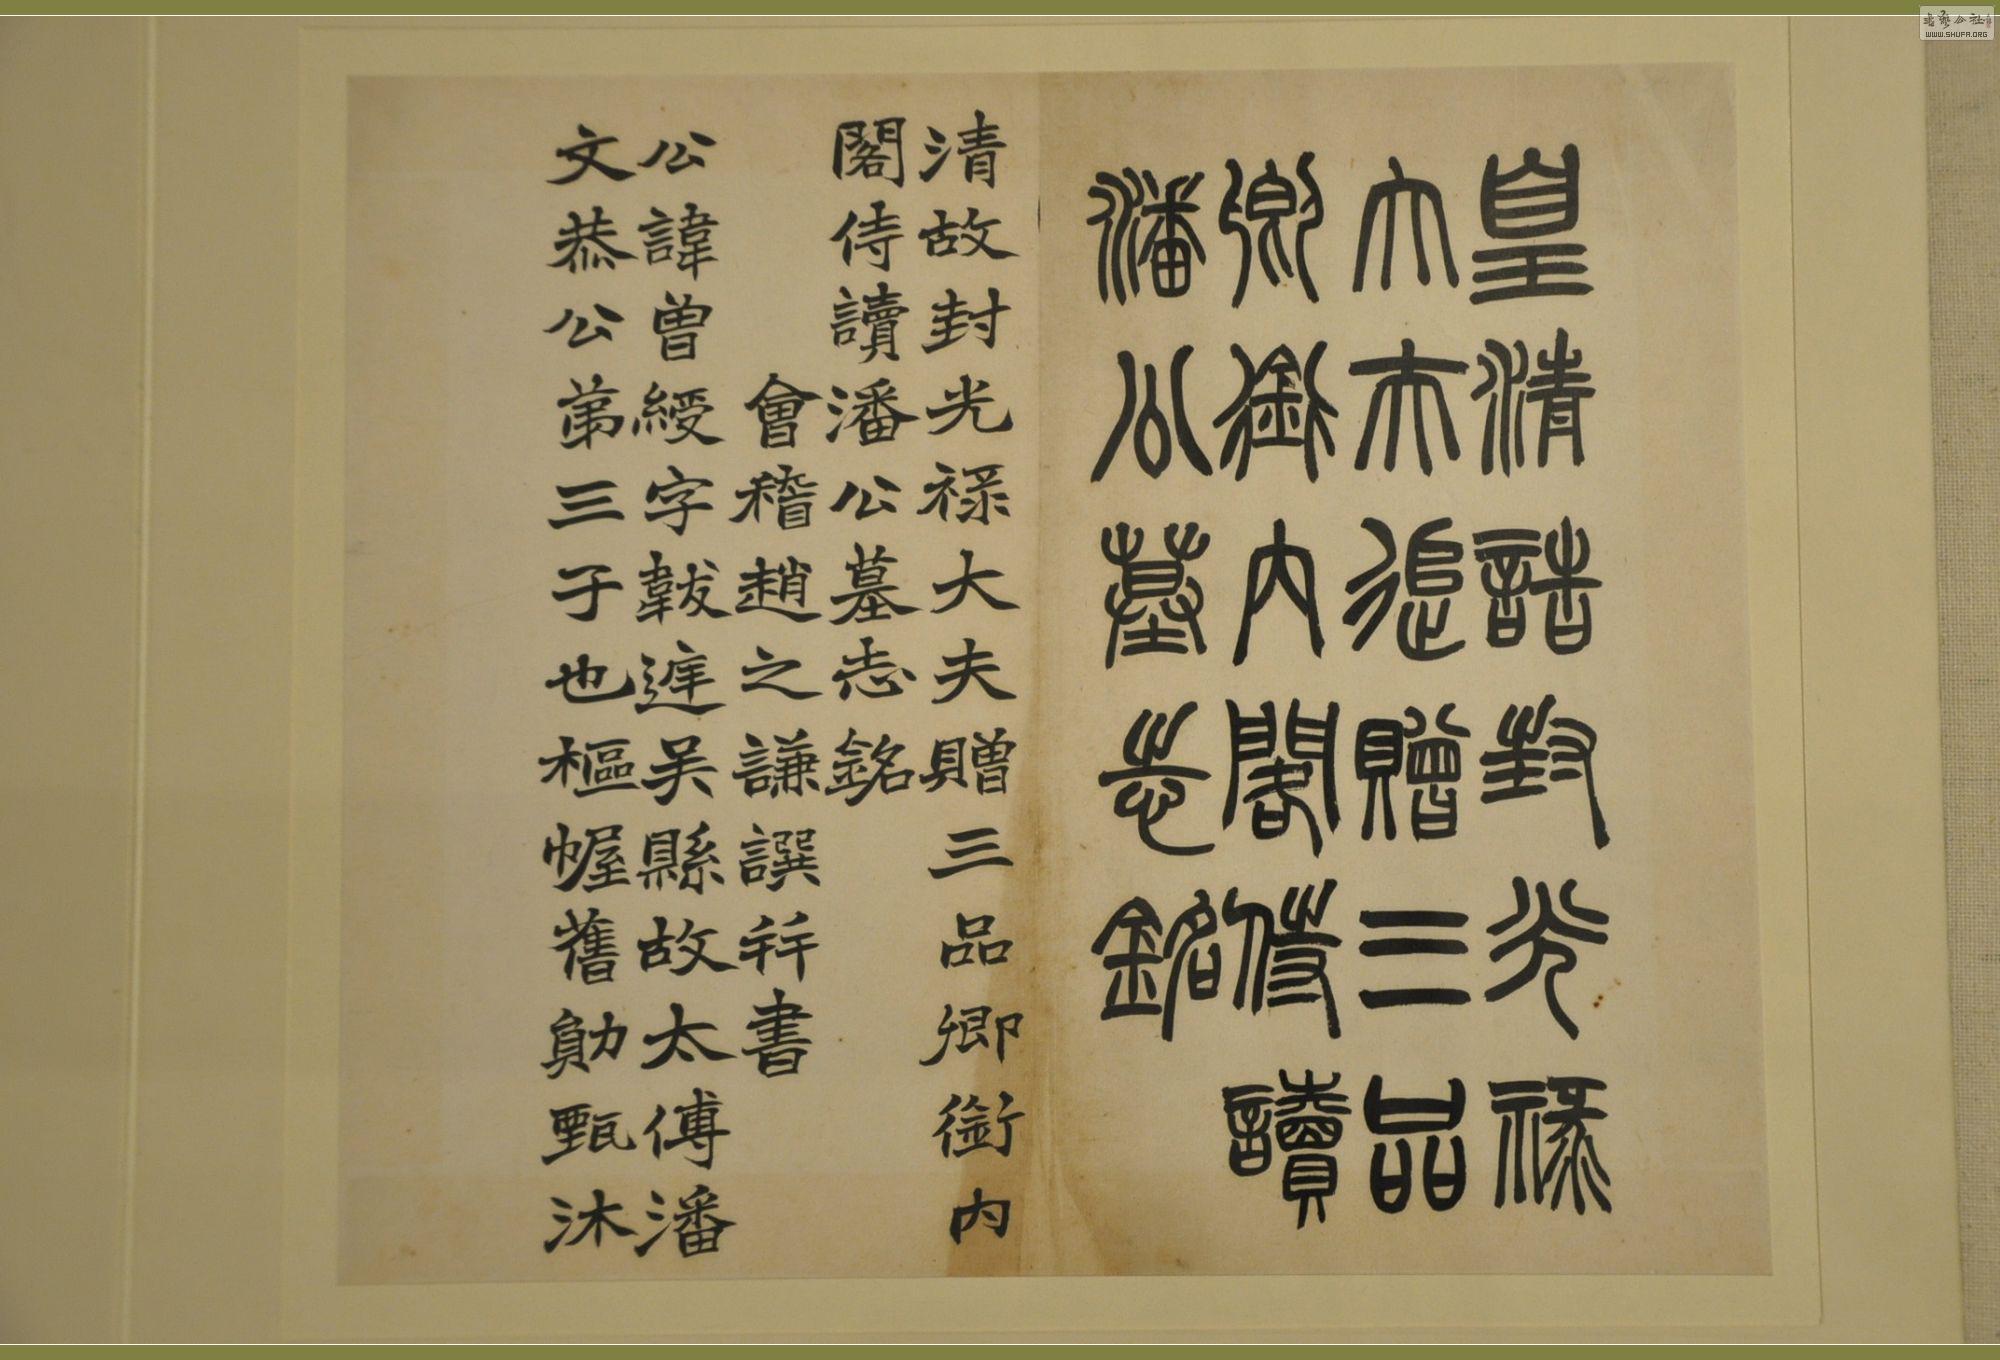 皇清誥封光祿
大夫追贈三品
卿銜內閣侍讀
潘公墓志銘
清故封光祿大夫贈三品卿銜內
閣侍讀潘公墓志銘
會稽趙之謙譔并書
公諱曾綬字韍庭吳縣故太傅潘
文恭公弟三子也樞幄舊勛甄沐
书艺公社
WWW.SHUFA.ORG